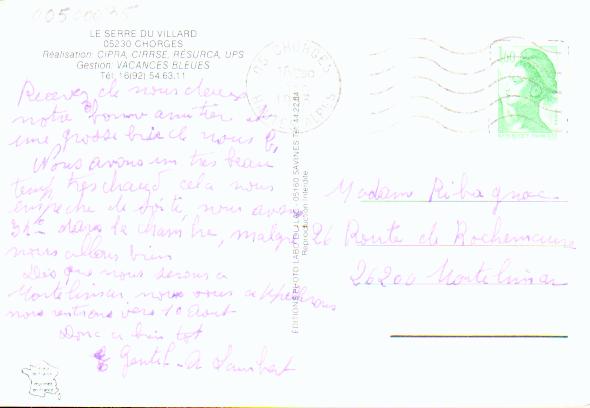 00500035
LE SERRE DU VILLARD
05230 CHORGES
Réalisation: CIPRA, CIRRSE, RÉSURCA, UPS
Gestion: VACANCES BLEUES
Tél. 16(92) 54.63.11
Recevez de nous deux
notre bonne
une grosse bise de nous
Nous avons un très beau
temps très chaud cela nous
empeche de nous avons
dans la chambre, malgré
nous allons bien
Dès que nous serons a
Montelimar nous vous
nous rentrons vers 10 Aout
Donc a bien tot
Gentil - A Lambert
EDITIONS PHOTO 05160 SAVINES Tél 44.22.84
Reproduction interdite
05 CHORGES
1,60
Madame
26 Route de Rochemaure
26200 Montelimar